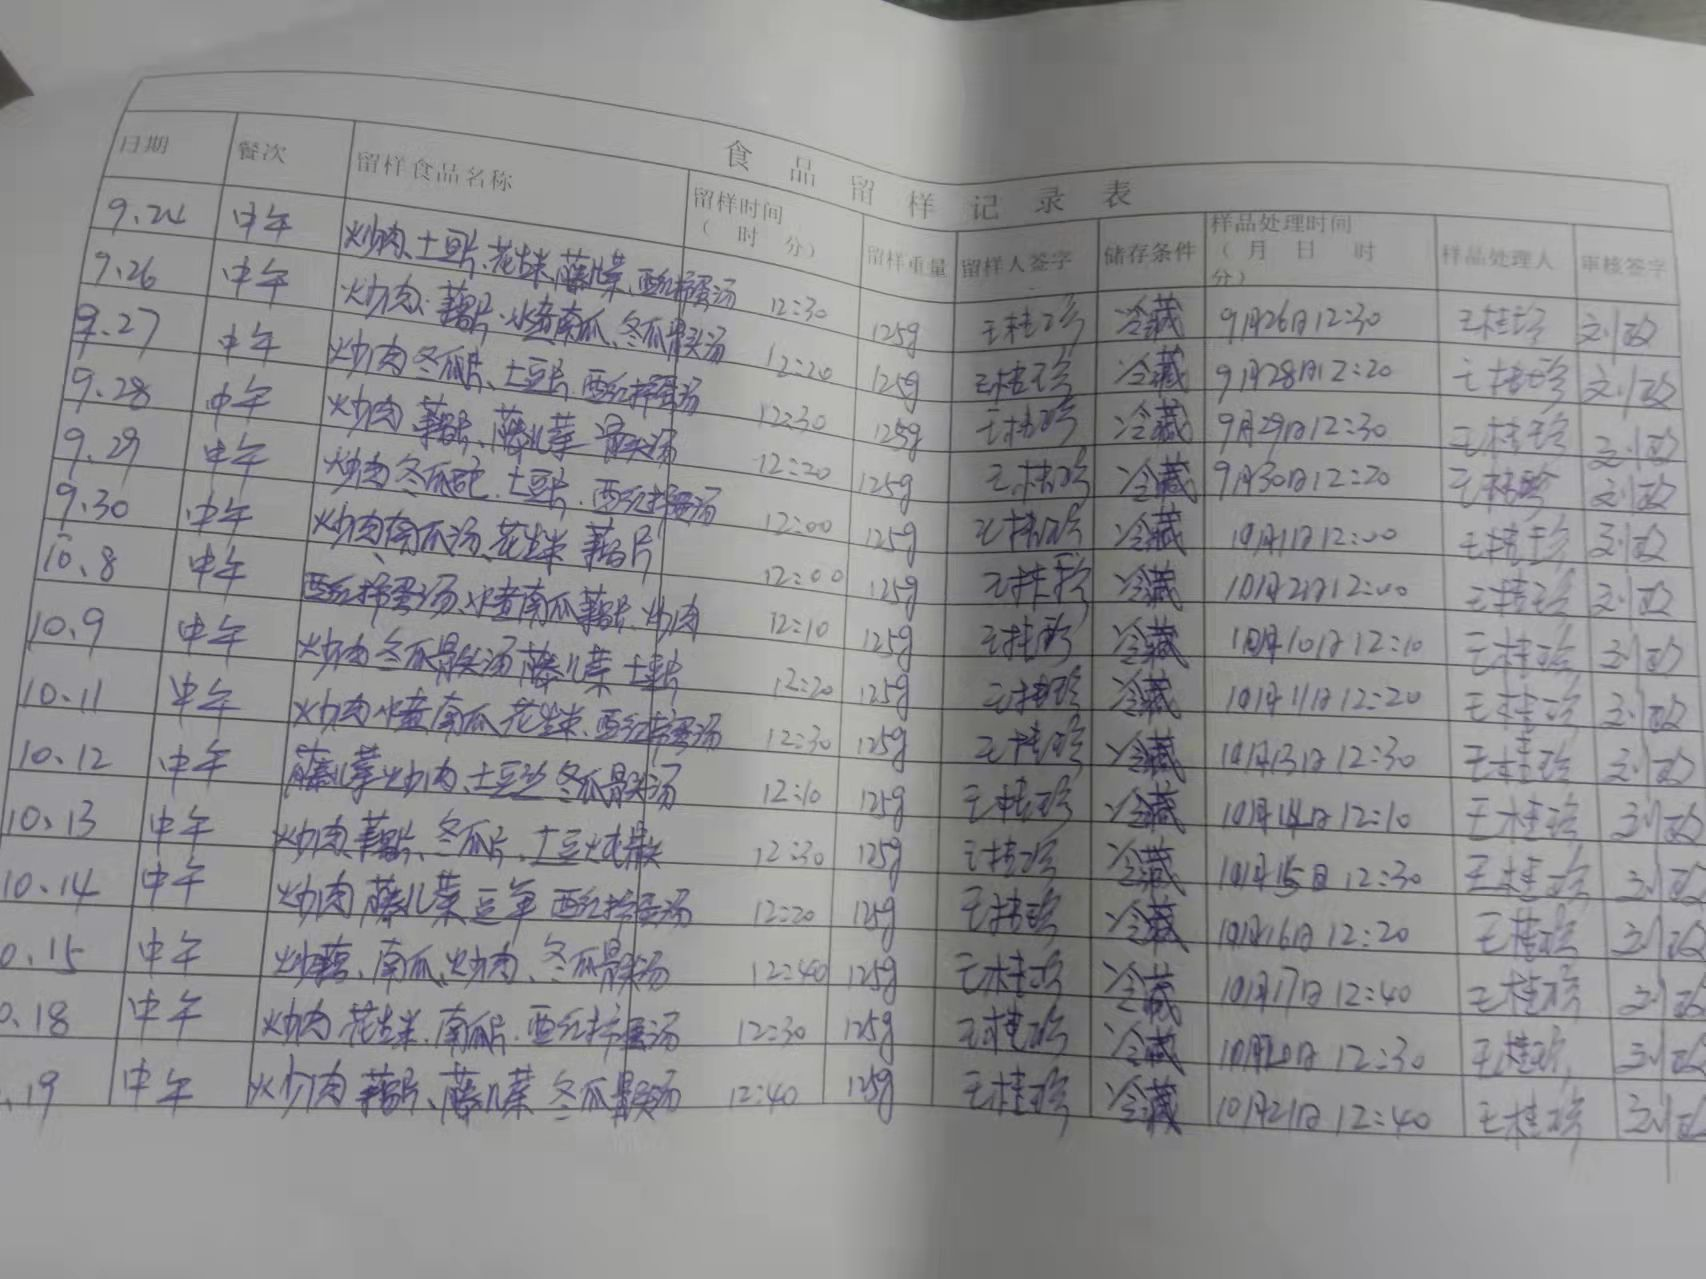 食品留样记录表
日期 餐次 留样食品名称 留样时间（ 时 分） 留样重量 留样人签字 储存条件 样品处理时间（ 月 日 时 分） 样品处理人 审核签字
9.24 中午 炒肉、土豆片、花生米、藤儿菜、西红柿蛋汤 12:30 125g 王桂珍 冷藏 9月26日12:30 王桂珍 刘政
9.26 中午 炒肉、藕片、水煮南瓜、冬瓜骨头汤 12:20 125g 王桂珍 冷藏 9月28日12:20 王桂珍 刘政
9.27 中午 炒肉 冬瓜片、土豆片、西红柿蛋汤 12:30 125g 王桂珍 冷藏 9月29日12:30 王桂珍 刘政
9.28 中午 炒肉 藕片、藤儿菜 骨头汤 12:20 125g 王桂珍 冷藏 9月30日12:20 王桂珍 刘政
9.29 中午 炒肉 冬瓜 土豆片、西红柿蛋汤 12:00 125g 王桂珍 冷藏 10月1日12:00 王桂珍 刘政
9.30 中午 炒肉、南瓜汤、花生米 藕片 12:00 125g 王桂珍 冷藏 10月2日12:00 王桂珍 刘政
10.8 中午 西红柿蛋汤、水煮南瓜 藕片、炒肉 12:10 125g 王桂珍 冷藏 10月10日12:10 王桂珍 刘政
10.9 中午 炒肉 冬瓜骨头汤 藤儿菜 土豆片 12:20 125g 王桂珍 冷藏 10月11日12:20 王桂珍 刘政
10.11 中午 炒肉 水煮南瓜 花生米、西红柿蛋汤 12:30 125g 王桂珍 冷藏 10月13日12:30 王桂珍 刘政
10.12 中午 藤儿菜 炒肉、土豆丝 冬瓜骨头汤 12:10 125g 王桂珍 冷藏 10月14日12:10 王桂珍 刘政
10.13 中午 炒肉、藕片、冬瓜片、土豆炖骨头 12:30 125g 王桂珍 冷藏 10月15日12:30 王桂珍 刘政
10.14 中午 炒肉 藤儿菜 豆 西红柿蛋汤 12:20 125g 王桂珍 冷藏 10月16日12:20 王桂珍 刘政
0.15 中午 炒藕、南瓜、炒肉、冬瓜骨头汤 12:40 125g 王桂珍 冷藏 10月17日12:40 王桂珍 刘政
0.18 中午 炒肉 花生米、南瓜片、西红柿蛋汤 12:30 125g 王桂珍 冷藏 10月20日12:30 王桂珍 刘政
.19 中午 炒肉 藕片、藤儿菜 冬瓜骨头汤 12:40 125g 王桂珍 冷藏 10月21日12:40 王桂珍 刘政